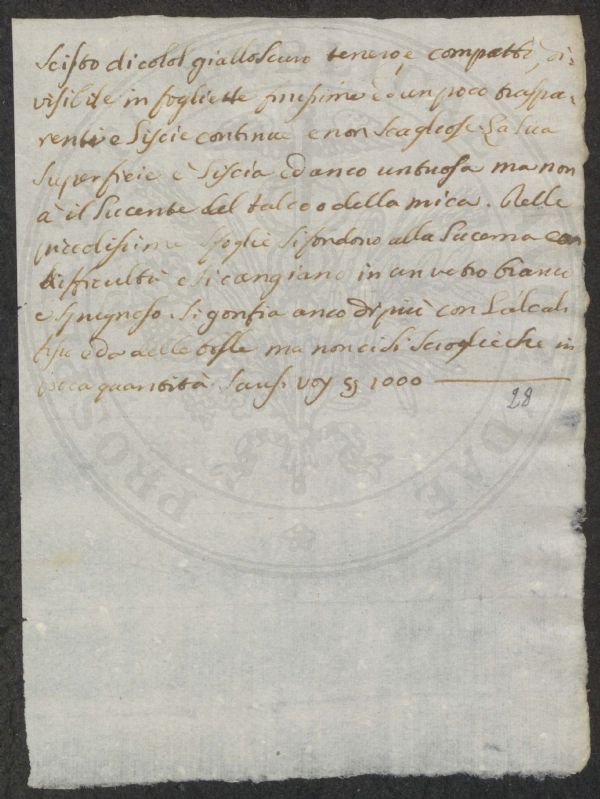 Scisto di color gialloscuro tenero, e compatto, di-
visibile in fogliette finissime ed un poco traspa-
renti e liscie continue e non scagliose. La sua
superficie è liscia ed anco untuosa ma non
à il lucente del talco o della mica. Nelle
piccolissime sfoglie si fondono alla lucerna con
difficultà e si cangiano in un vetro bianco
e spugnoso. Si gonfia anco di più con l'alcali
e da delle bolle ma non ci si scioglie che in
poca quantità. Sauss. voy §§ 1000
28